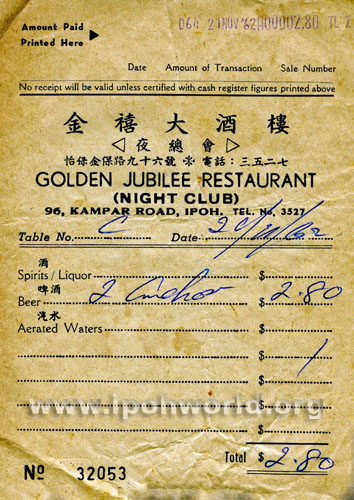 Amount Paid
Printed Here
064 21NOV'62H0000Z.80 TL
Date Amount of Transaction Sale Number
No receipt will be valid unless certified with cash register figures printed above
金禧大酒樓
◁夜總會▷
怡保金保路九十六號※電話：三五二七
GOLDEN JUBILEE RESTAURANT
(NIGHT CLUB)
96, KAMPAR ROAD, IPOH. TEL. No. 3527
Table No. C Date 62
酒
Spirits / Liquor $
啤酒
Beer 2 Anchor $ 2.80
汽水
Aerated Waters $
$
$
$
$
www.ipohworld.org
Total $ 2.80
No 32053